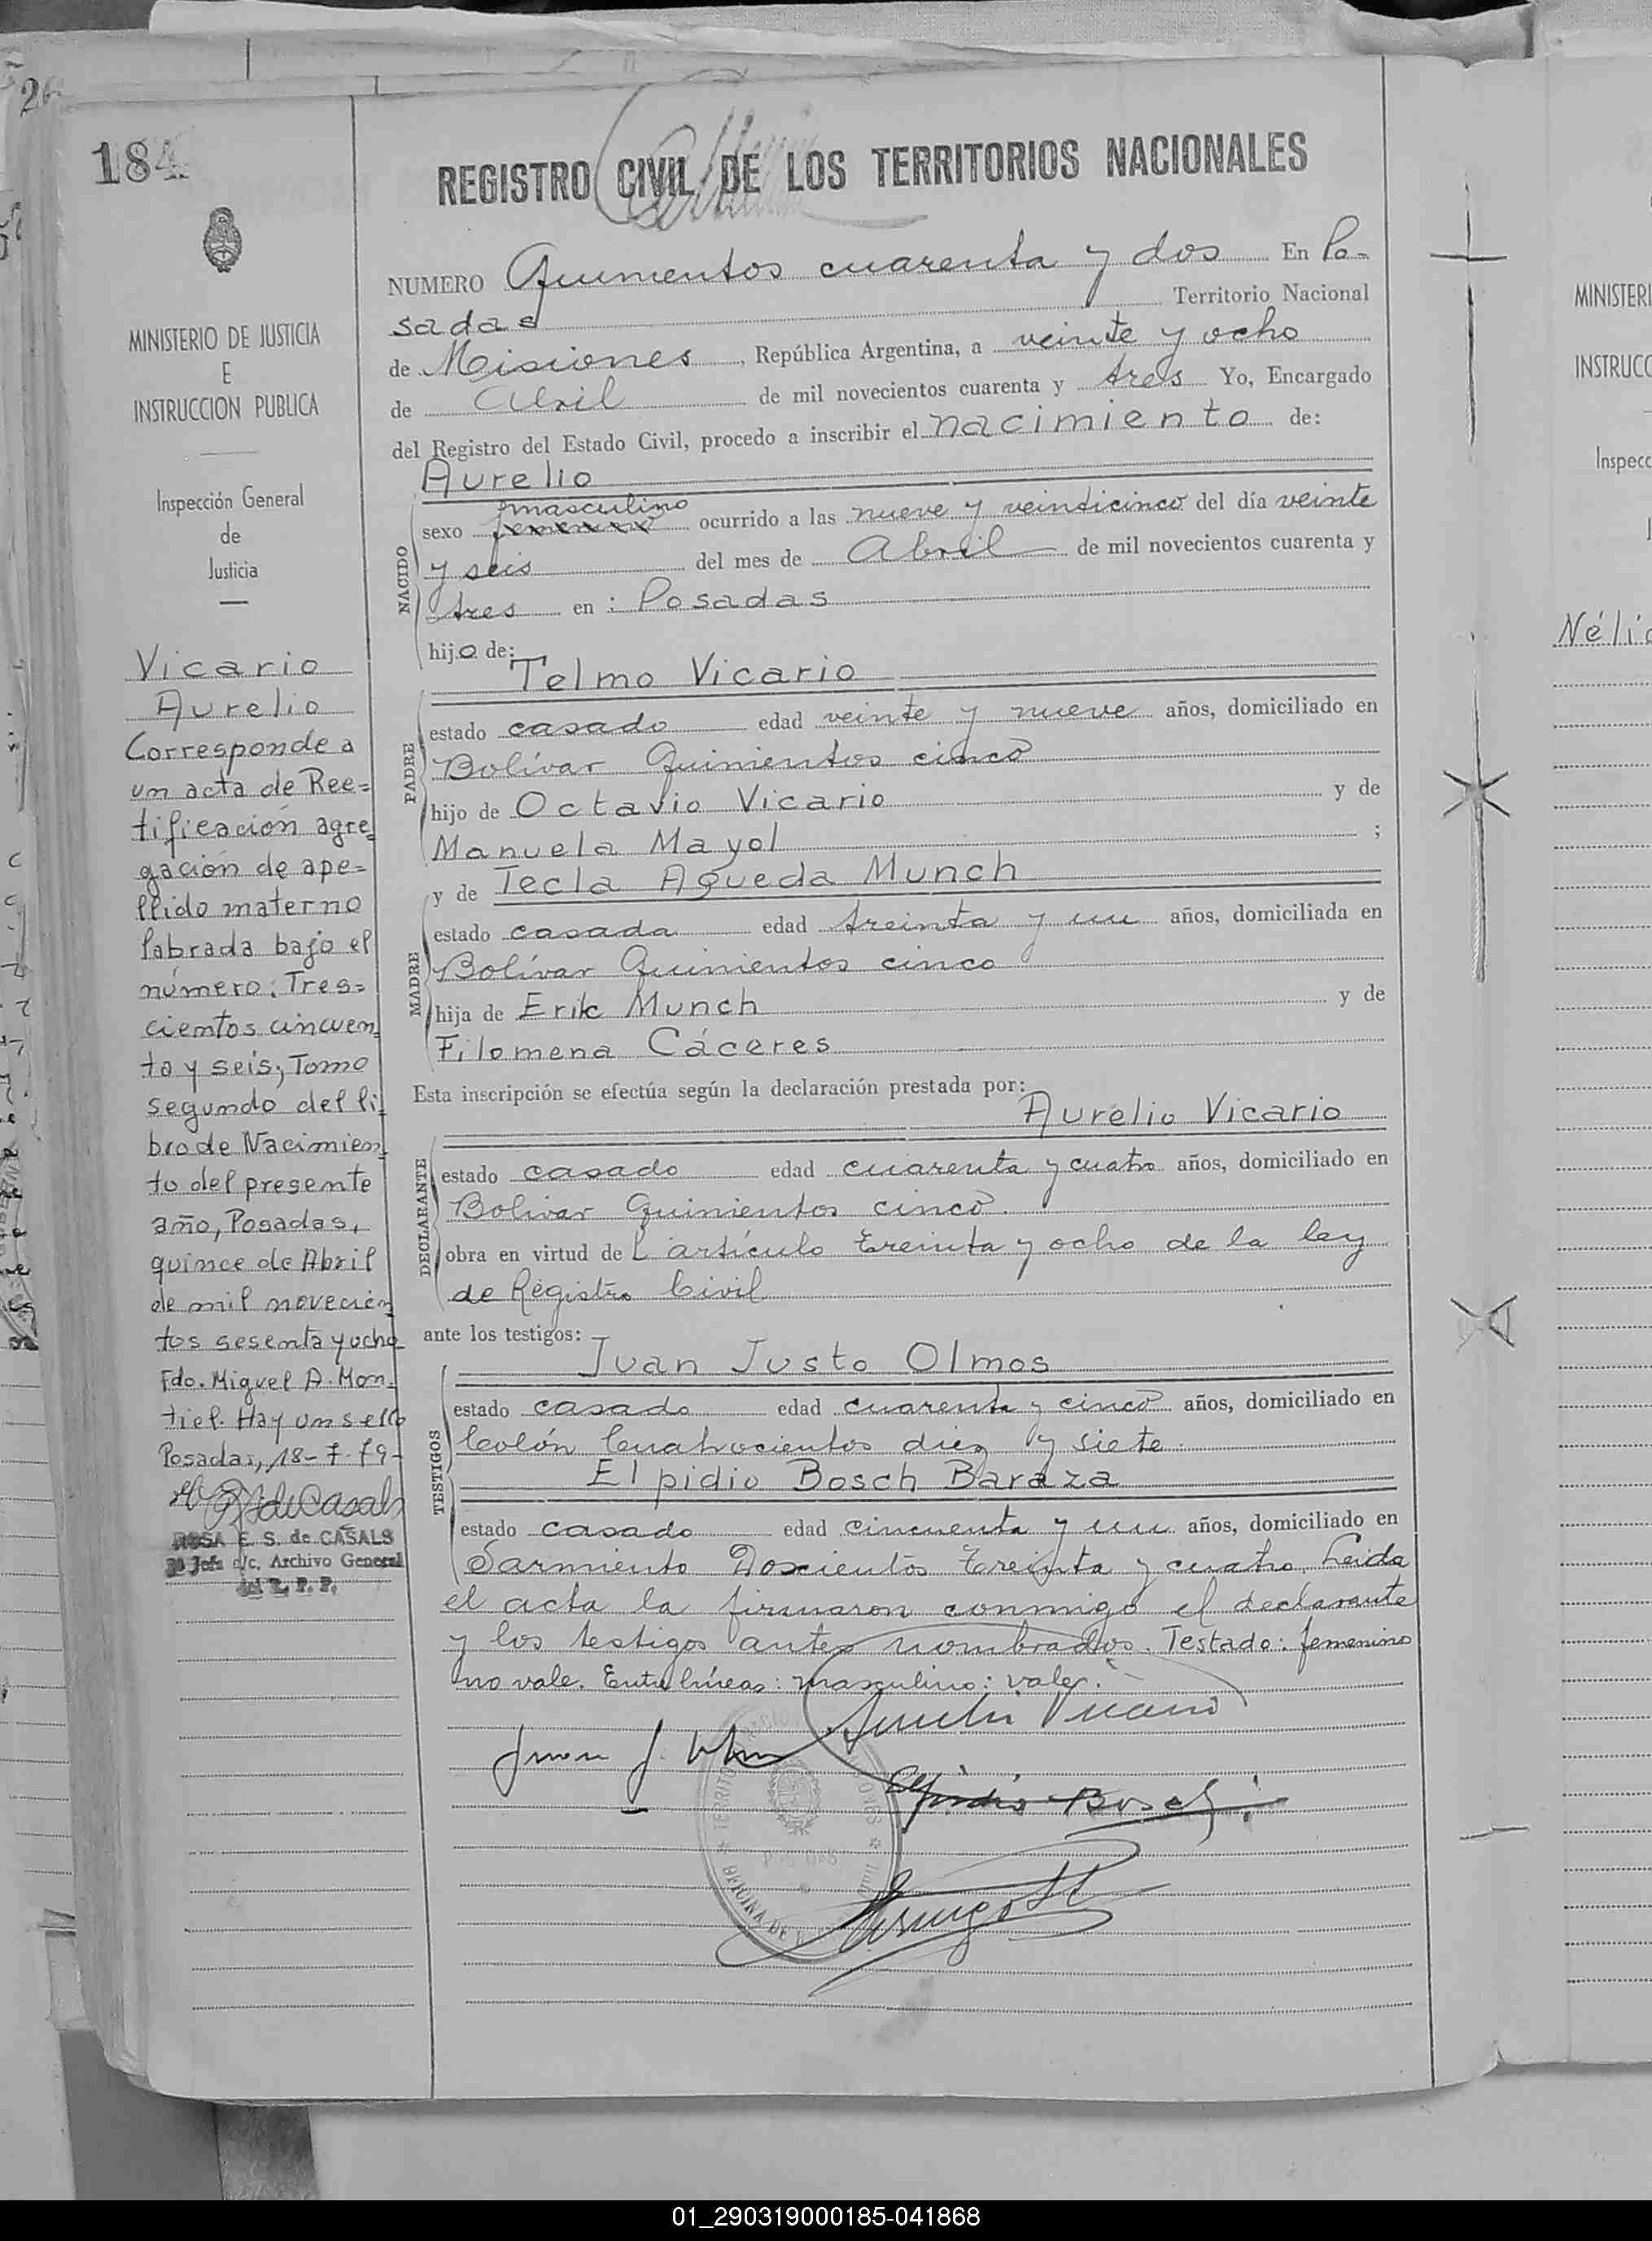 184
REGISTRO CIVIL DE LOS TERRITORIOS NACIONALES
MINISTERIO DE JUSTICIA
E
INSTRUCCION PUBLICA
Inspección General
de
Justicia
Vicario
Aurelio
Corresponde a
un acta de Rec=
tificación agre
gación de ape=
llido materno
labrada bajo el
número: Tres=
cientos cincuen
ta y seis, Tomo
segundo del li
bro de Nacimien
to del presente
año, Posadas,
quince de Abril
de mil novecien
tos sesenta y ocho
Fdo. Miguel A. Mon
tiel. Hay un sello
Posadas, 18-7-79-
ROSA E. S. de CASALS
Jefe a/c. Archivo General
del R. P. P.
NUMERO Quinientos cuarenta y dos En Po-
sadas Territorio Nacional
de Misiones, República Argentina, a veinte y ocho
de Abril de mil novecientos cuarenta y tres Yo, Encargado
del Registro del Estado Civil, procedo a inscribir el nacimiento de:
Aurelio
masculino
sexo femenino ocurrido a las nueve y veinticinco del día veinte
NACIDO
y seis del mes de Abril de mil novecientos cuarenta y
tres en: Posadas
hijo de:
Telmo Vicario
PADRE
estado casado edad veinte y nueve años, domiciliado en
Bolívar Quinientos cinco
hijo de Octavio Vicario y de
Manuela Mayol ;
y de Tecla Agueda Munch
MADRE
estado casada edad treinta y un años, domiciliada en
Bolívar Quinientos cinco
hija de Erik Munch y de
Filomena Cáceres
Esta inscripción se efectúa según la declaración prestada por:
Aurelio Vicario
DECLARANTE
estado casado edad cuarenta y cuatro años, domiciliado en
Bolivar Quinientos cinco.
obra en virtud del artículo treinta y ocho de la ley
de Registro Civil
ante los testigos:
Juan Justo Olmos
TESTIGOS
estado casado edad cuarenta y cinco años, domiciliado en
Colón Cuatrocientos diez y siete.
Elpidio Bosch Baraza
estado casado edad cincuenta y un años, domiciliado en
Sarmiento Doscientos treinta y cuatro. Leida
el acta la firmaron conmigo el declarante
y los testigos antes nombrados. Testado: femenino
no vale. Entre líneas: masculino: vale.
Aurelio Vicario
Juan J. Olmos
Elpidio Bosch
OFICINA DE
MINISTERI
INSTRUCC
Inspecc
Néli
01_290319000185-041868